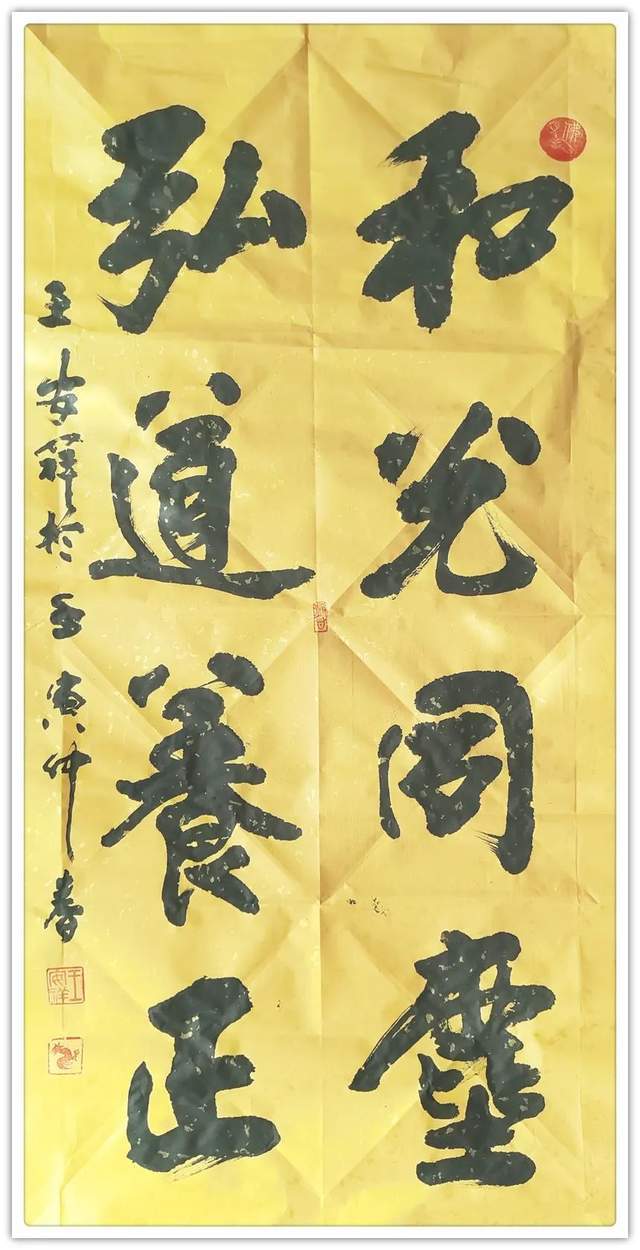 和光同塵
弘道養正
王安祥於壬寅仲春
王安祥